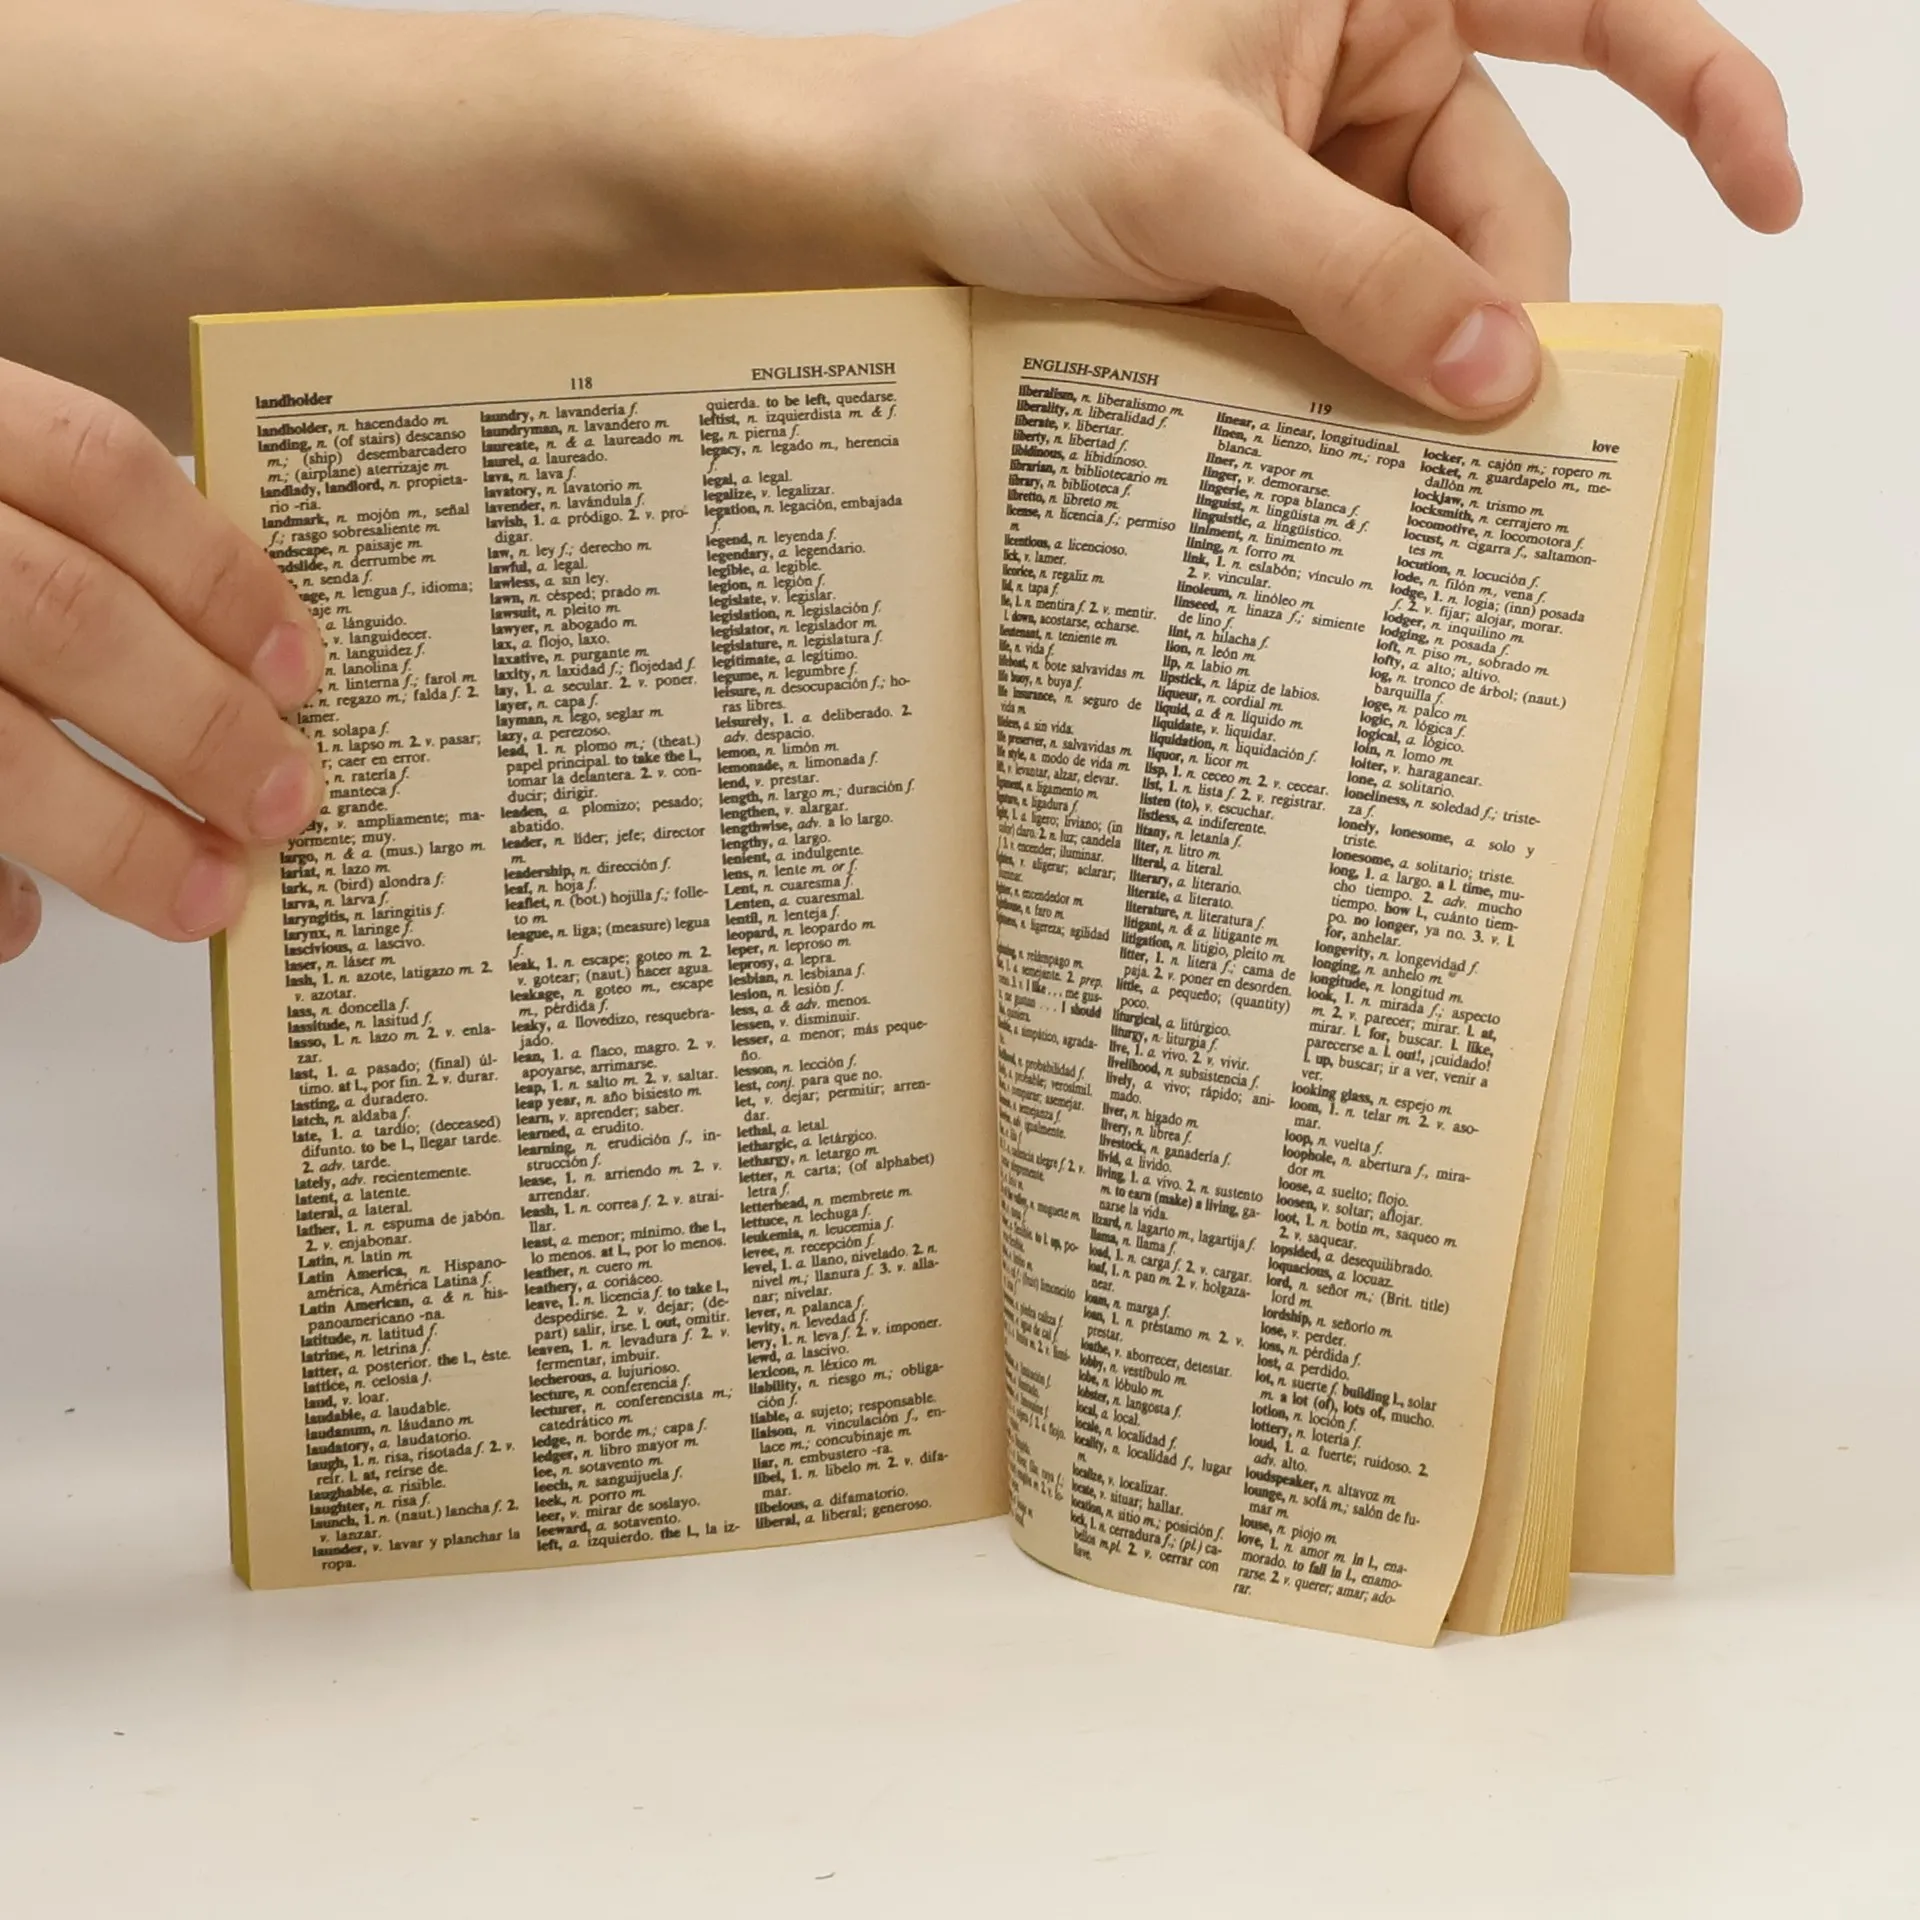 landholder
118
ENGLISH-SPANISH
landholder, n. hacendado m.
landing, n. (of stairs) descanso
m.; (ship) desembarcadero
m.; (airplane) aterrizaje m.
landlady, landlord, n. propieta-
rio -ria.
landmark, n. mojón m., señal
f.; rasgo sobresaliente m.
n. paisaje m.
n. derrumbe m.
n. senda f.
n. lengua f., idioma;
m.
a. lánguido.
v. languidecer.
n. languidez f.
n. lanolina f.
n. linterna f.; farol m.
n. regazo m.; falda f. 2.
lamer.
n. solapa f.
1. n. lapso m. 2. v. pasar;
caer en error.
n. ratería f.
manteca f.
a. grande.
v. ampliamente; ma-
yormente; muy.
largo, n. & a. (mus.) largo m.
lariat, n. lazo m.
lark, n. (bird) alondra f.
larva, n. larva f.
laryngitis, n. laringitis f.
larynx, n. laringe f.
lascivious, a. lascivo.
laser, n. láser m.
lash, 1. n. azote, latigazo m. 2.
v. azotar.
lass, n. doncella f.
lassitude, n. lasitud f.
lasso, 1. n. lazo m. 2. v. enla-
zar.
last, 1. a. pasado; (final) úl-
timo. at l., por fin. 2. v. durar.
lasting, a. duradero.
latch, n. aldaba f.
late, 1. a. tardío; (deceased)
difunto. to be l., llegar tarde.
2. adv. tarde.
lately, adv. recientemente.
latent, a. latente.
lateral, a. lateral.
lather, 1. n. espuma de jabón.
2. v. enjabonar.
Latin, n. latín m.
Latin America, n. Hispano-
américa, América Latina f.
Latin American, a. & n. his-
panoamericano -na.
latitude, n. latitud f.
latrine, n. letrina f.
latter, a. posterior. the l., éste.
lattice, n. celosía f.
laud, v. loar.
laudable, a. laudable.
laudanum, n. láudano m.
laudatory, a. laudatorio.
laugh, 1. n. risa, risotada f. 2. v.
reír. l. at, reírse de.
laughable, a. risible.
laughter, n. risa f.
launch, 1. n. (naut.) lancha f. 2.
v. lanzar.
launder, v. lavar y planchar la
ropa.
laundry, n. lavandería f.
laundryman, n. lavandero m.
laureate, n. & a. laureado m.
laurel, a. laureado.
lava, n. lava f.
lavatory, n. lavatorio m.
lavender, n. lavándula f.
lavish, 1. a. pródigo. 2. v. pro-
digar.
law, n. ley f.; derecho m.
lawful, a. legal.
lawless, a. sin ley.
lawn, n. césped; prado m.
lawsuit, n. pleito m.
lawyer, n. abogado m.
lax, a. flojo, laxo.
laxative, n. purgante m.
laxity, n. laxidad f.; flojedad f.
lay, 1. a. secular. 2. v. poner.
layer, n. capa f.
layman, n. lego, seglar m.
lazy, a. perezoso.
lead, 1. n. plomo m.; (theat.)
papel principal. to take the l.,
tomar la delantera. 2. v. con-
ducir; dirigir.
leaden, a. plomizo; pesado;
abatido.
leader, n. líder; jefe; director
m.
leadership, n. dirección f.
leaf, n. hoja f.
leaflet, n. (bot.) hojilla f.; folle-
to m.
league, n. liga; (measure) legua
f.
leak, 1. n. escape; goteo m. 2.
v. gotear; (naut.) hacer agua.
leakage, n. goteo m., escape
m., pérdida f.
leaky, a. llovedizo, resquebra-
jado.
lean, 1. a. flaco, magro. 2. v.
apoyarse, arrimarse.
leap, 1. n. salto m. 2. v. saltar.
leap year, n. año bisiesto m.
learn, v. aprender; saber.
learned, a. erudito.
learning, n. erudición f., in-
strucción f.
lease, 1. n. arriendo m. 2. v.
arrendar.
leash, 1. n. correa f. 2. v. atrai-
llar.
least, a. menor; mínimo. the l.,
lo menos. at l., por lo menos.
leather, n. cuero m.
leathery, a. coriáceo.
leave, 1. n. licencia f. to take l.,
despedirse. 2. v. dejar; (de-
part) salir, irse. l. out, omitir.
leaven, 1. n. levadura f. 2. v.
fermentar, imbuir.
lecherous, a. lujurioso.
lecture, n. conferencia f.
lecturer, n. conferencista m.;
catedrático m.
ledge, n. borde m.; capa f.
ledger, n. libro mayor m.
lee, n. sotavento m.
leech, n. sanguijuela f.
leek, n. porro m.
leer, v. mirar de soslayo.
leeward, a. sotavento.
left, a. izquierdo. the l., la iz-
quierda. to be left, quedarse.
leftist, n. izquierdista m. & f.
leg, n. pierna f.
legacy, n. legado m., herencia
f.
legal, a. legal.
legalize, v. legalizar.
legation, n. legación, embajada
f.
legend, n. leyenda f.
legendary, a. legendario.
legible, a. legible.
legion, n. legión f.
legislate, v. legislar.
legislation, n. legislación f.
legislator, n. legislador m.
legislature, n. legislatura f.
legitimate, a. legítimo.
legume, n. legumbre f.
leisure, n. desocupación f.; ho-
ras libres.
leisurely, 1. a. deliberado. 2.
adv. despacio.
lemon, n. limón m.
lemonade, n. limonada f.
lend, v. prestar.
length, n. largo m.; duración f.
lengthen, v. alargar.
lengthwise, adv. a lo largo.
lengthy, a. largo.
lenient, a. indulgente.
lens, n. lente m. or f.
Lent, n. cuaresma f.
Lenten, a. cuaresmal.
lentil, n. lenteja f.
leopard, n. leopardo m.
leper, n. leproso m.
leprosy, n. lepra.
lesbian, n. lesbiana f.
lesion, n. lesión f.
less, a. & adv. menos.
lessen, v. disminuir.
lesser, a. menor; más peque-
ño.
lesson, n. lección f.
lest, conj. para que no.
let, v. dejar; permitir; arren-
dar.
lethal, a. letal.
lethargic, a. letárgico.
lethargy, n. letargo m.
letter, n. carta; (of alphabet)
letra f.
letterhead, n. membrete m.
lettuce, n. lechuga f.
leukemia, n. leucemia f.
levee, n. recepción f.
level, 1. a. llano, nivelado. 2. n.
nivel m.; llanura f. 3. v. alla-
nar; nivelar.
lever, n. palanca f.
levity, n. levedad f.
levy, 1. n. leva f. 2. v. imponer.
lewd, a. lascivo.
lexicon, n. léxico m.
liability, n. riesgo m.; obliga-
ción f.
liable, a. sujeto; responsable.
liaison, n. vinculación f., en-
lace m.; concubinaje m.
liar, n. embustero -ra.
libel, 1. n. libelo m. 2. v. difa-
mar.
libelous, a. difamatorio.
liberal, a. liberal; generoso.
ENGLISH-SPANISH
119
love
liberalism, n. liberalismo m.
liberality, n. liberalidad f.
liberate, v. libertar.
liberty, n. libertad f.
libidinous, a. libidinoso.
librarian, n. bibliotecario m.
library, n. biblioteca f.
libretto, n. libreto m.
license, n. licencia f.; permiso
m.
licentious, a. licencioso.
lick, v. lamer.
licorice, n. regaliz m.
lid, n. tapa f.
lie, 1. n. mentira f. 2. v. mentir.
l. down, acostarse, echarse.
lieutenant, n. teniente m.
life, n. vida f.
lifeboat, n. bote salvavidas m.
life buoy, n. buya f.
life insurance, n. seguro de
vida m.
lifeless, a. sin vida.
life preserver, n. salvavidas m.
life style, n. modo de vida m.
lift, v. levantar, alzar, elevar.
ligament, n. ligamento m.
ligature, n. ligadura f.
light, 1. a. ligero; liviano; (in
color) claro. 2. n. luz; candela
f. 3. v. encender; iluminar.
lighten, v. aligerar; aclarar;
iluminar.
lighter, n. encendedor m.
lighthouse, n. faro m.
lightness, n. ligereza; agilidad
f.
lightning, n. relámpago m.
like, 1. a. semejante. 2. prep.
como. 3. v. I like . . . me gus-
ta, me gustan . . . I should
like, quisiera.
a. simpático, agrada-
n. probabilidad f.
a. probable; verosímil.
comparar; asemejar.
n. semejanza f.
adv. igualmente.
linear, a. linear, longitudinal.
linen, n. lienzo, lino m.; ropa
blanca.
liner, n. vapor m.
linger, v. demorarse.
lingerie, n. ropa blanca f.
linguist, n. lingüista m. & f.
linguistic, a. lingüístico.
liniment, n. linimento m.
lining, n. forro m.
link, 1. n. eslabón; vínculo m.
2. v. vincular.
linoleum, n. linóleo m.
linseed, n. linaza f.; simiente
de lino f.
lint, n. hilacha f.
lion, n. león m.
lip, n. labio m.
lipstick, n. lápiz de labios.
liqueur, n. cordial m.
liquid, a. & n. líquido m.
liquidate, v. liquidar.
liquidation, n. liquidación f.
liquor, n. licor m.
lisp, 1. n. ceceo m. 2. v. cecear.
list, 1. n. lista f. 2. v. registrar.
listen (to), v. escuchar.
listless, a. indiferente.
litany, n. letanía f.
liter, n. litro m.
literal, a. literal.
literary, a. literario.
literate, a. literato.
literature, n. literatura f.
litigant, n. & a. litigante m.
litigation, n. litigio, pleito m.
litter, 1. n. litera f.; cama de
paja. 2. v. poner en desorden.
little, a. pequeño; (quantity)
poco.
liturgical, a. litúrgico.
liturgy, n. liturgia f.
live, 1. a. vivo. 2. v. vivir.
livelihood, n. subsistencia f.
lively, a. vivo; rápido; ani-
mado.
liver, n. hígado m.
livery, n. librea f.
livestock, n. ganadería f.
livid, a. lívido.
living, 1. a. vivo. 2. n. sustento
m. to earn (make) a living, ga-
narse la vida.
lizard, n. lagarto m., lagartija f.
llama, n. llama f.
load, 1. n. carga f. 2. v. cargar.
loaf, 1. n. pan m. 2. v. holgaza-
near.
loam, n. marga f.
loan, 1. n. préstamo m. 2. v.
prestar.
loathe, v. aborrecer, detestar.
lobby, n. vestíbulo m.
lobe, n. lóbulo m.
lobster, n. langosta f.
local, a. local.
locale, n. localidad f.
locality, n. localidad f., lugar
m.
localize, v. localizar.
locate, v. situar; hallar.
location, n. sitio m.; posición f.
lock, 1. n. cerradura f.; (pl.) ca-
bellos m.pl. 2. v. cerrar con
llave.
locker, n. cajón m.; ropero m.
locket, n. guardapelo m., me-
dallón m.
lockjaw, n. trismo m.
locksmith, n. cerrajero m.
locomotive, n. locomotora f.
locust, n. cigarra f., saltamon-
tes m.
locution, n. locución f.
lode, n. filón m., vena f.
lodge, 1. n. logia; (inn) posada
f. 2. v. fijar; alojar, morar.
lodger, n. inquilino m.
lodging, n. posada f.
loft, n. piso m., sobrado m.
lofty, a. alto; altivo.
log, n. tronco de árbol; (naut.)
barquilla f.
loge, n. palco m.
logic, n. lógica f.
logical, a. lógico.
loin, n. lomo m.
loiter, v. haraganear.
lone, a. solitario.
loneliness, n. soledad f.; triste-
za f.
lonely, lonesome, a. solo y
triste.
lonesome, a. solitario; triste.
long, 1. a. largo. a l. time, mu-
cho tiempo. 2. adv. mucho
tiempo. how l., cuánto tiem-
po. no longer, ya no. 3. v. l.
for, anhelar.
longevity, n. longevidad f.
longing, n. anhelo m.
longitude, n. longitud m.
look, 1. n. mirada f.; aspecto
m. 2. v. parecer; mirar. l. at,
mirar. l. for, buscar. l. like,
parecerse a. l. out!, ¡cuidado!
l. up, buscar; ir a ver, venir a
ver.
looking glass, n. espejo m.
loom, 1. n. telar m. 2. v. aso-
mar.
loop, n. vuelta f.
loophole, n. abertura f., mira-
dor m.
loose, a. suelto; flojo.
loosen, v. soltar; aflojar.
loot, 1. n. botín m., saqueo m.
2. v. saquear.
lopsided, a. desequilibrado.
loquacious, a. locuaz.
lord, n. señor m.; (Brit. title)
lord m.
lordship, n. señorío m.
lose, v. perder.
loss, n. pérdida f.
lost, a. perdido.
lot, n. suerte f. building l., solar
m. a lot (of), lots of, mucho.
lotion, n. loción f.
lottery, n. lotería f.
loud, 1. a. fuerte; ruidoso. 2.
adv. alto.
loudspeaker, n. altavoz m.
lounge, n. sofá m.; salón de fu-
mar m.
louse, n. piojo m.
love, 1. n. amor m. in l., ena-
morado. to fall in l., enamo-
rarse. 2. v. querer; amar; ado-
rar.